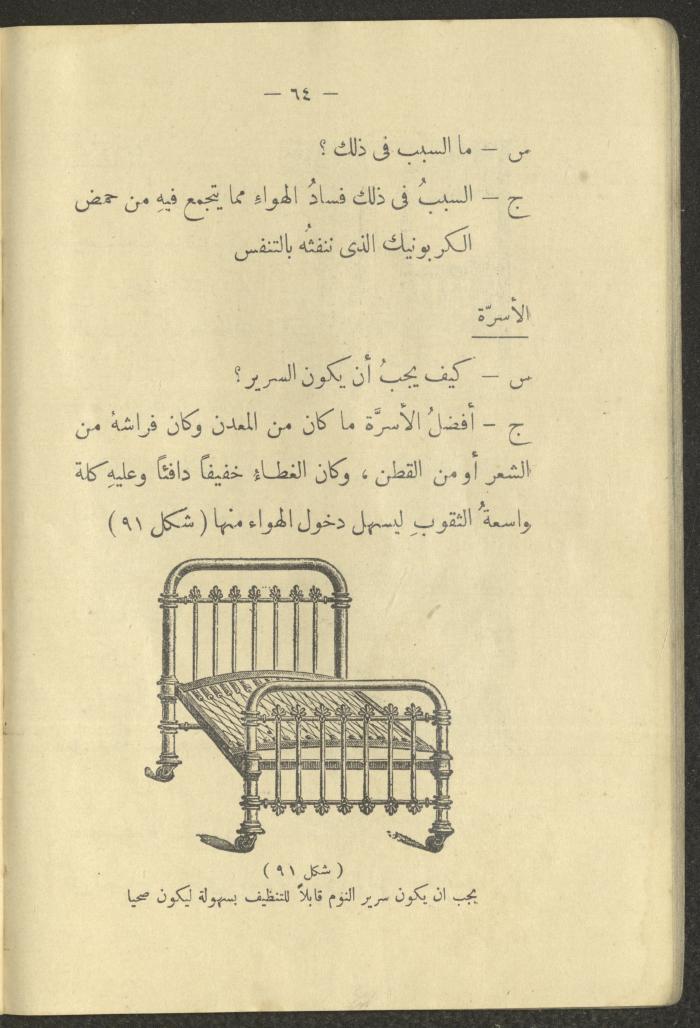 — ٦٤ —
س — ما السبب فى ذلك ؟
ج — السببُ فى ذلك فسادُ الهواءِ مما يتجمع فيهِ من حمض
الكربونيك الذى ننفثُه بالتنفس
الأسرّة
س — كيف يجبُ أن يكون السرير ؟
ج — أفضلُ الأسرَّة ما كان من المعدن وكان فراشهُ من
الشعر أو من القطن ، وكان الغطاءِ خفيفاً دافئاً وعليهِ كلة
واسعةُ الثقوبِ ليسهل دخول الهواء منها ( شكل ٩١ )
( شكل ٩١ )
يجب ان يكون سرير النوم قابلاً للتنظيف بسهولة ليكون صحيا